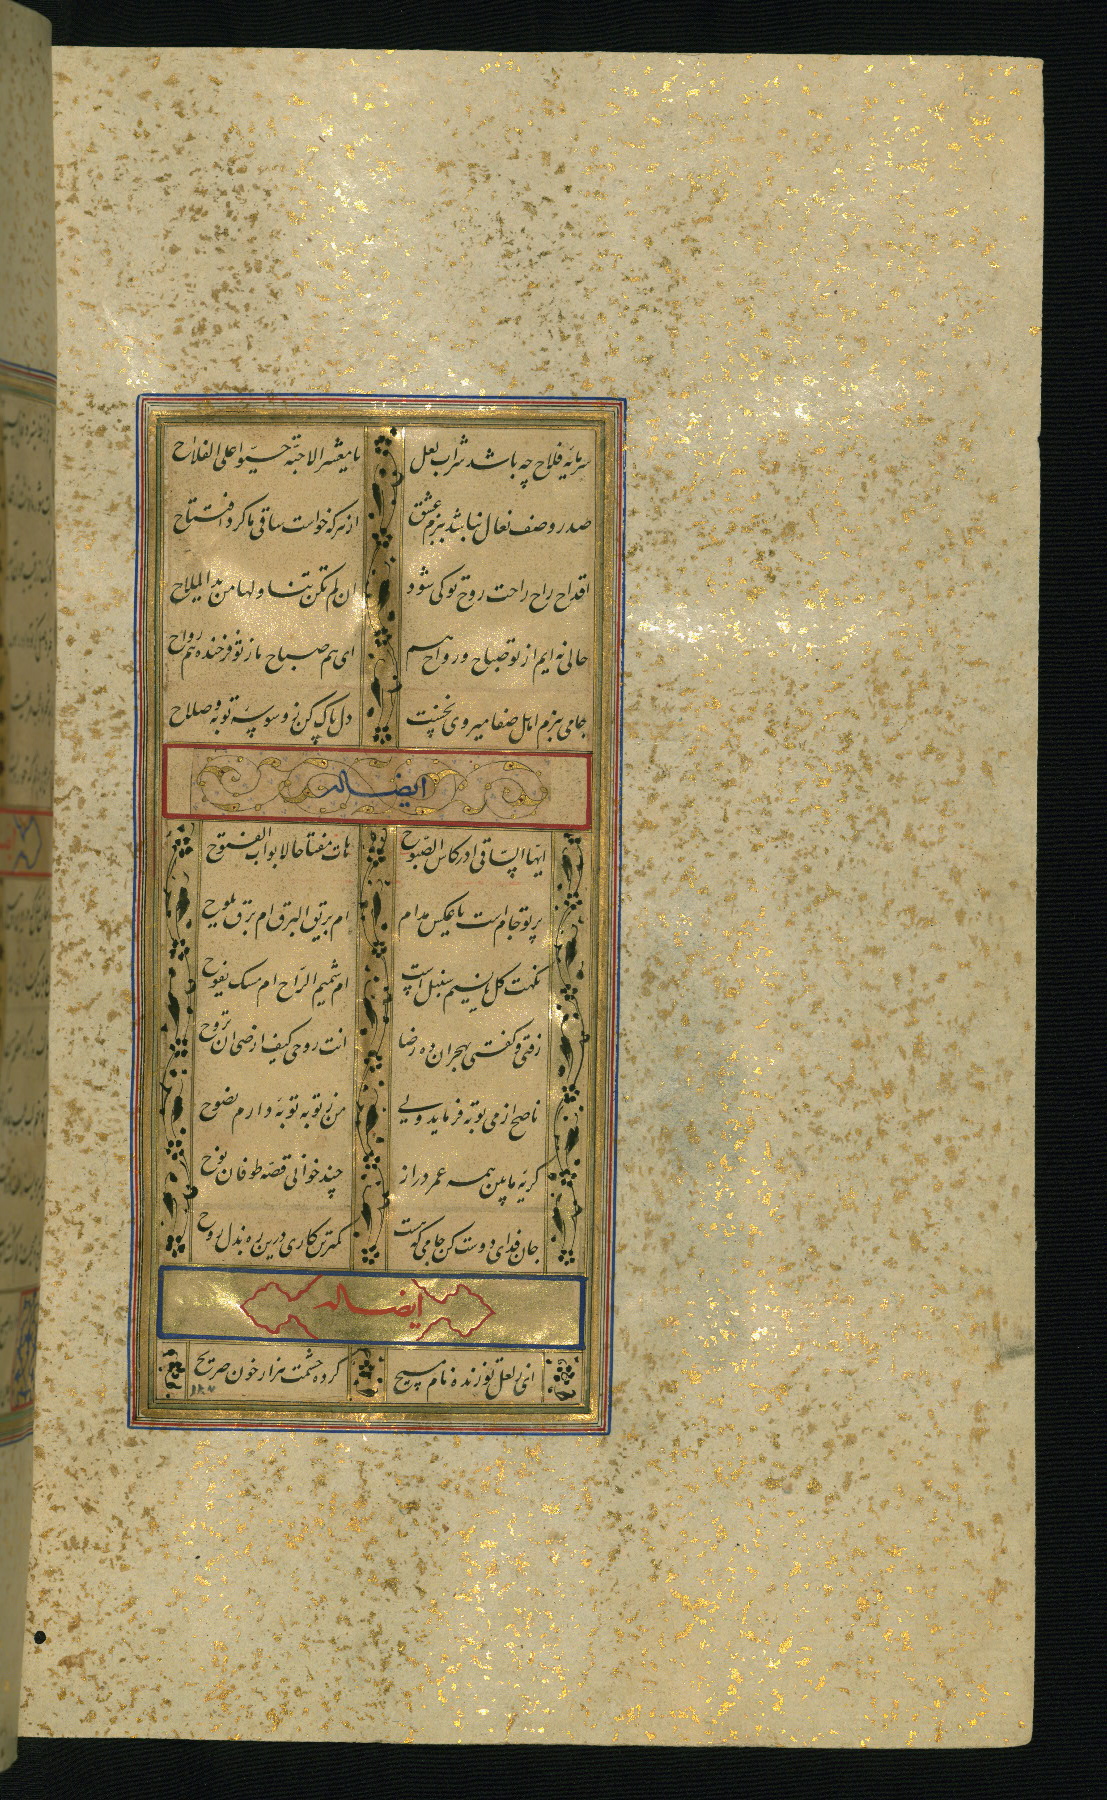 سرمایه فلاح چه باشد شراب لعل یا معشر الاحبة حیوا علی الفلاح
صدر و صف نعال نباشد ببزم عشق از هر که خواست ساقی ما کرد افتتاح
اقداح راح راحت روح تو کی شود ان لم تکن تناولها من ید الملاح
حالی نه ایم از تو صباح و رواح هم ای هم صباح ما ز تو فرخنده هم رواح
جامی ببزم اهل صفا میروی نخست دل پاک کن ز وسوسه توبه و صلاح
ایضاله
ایها الساقی ادر کاس الصبوح هات مفتاحا لابواب الفتوح
پرتو جام است یا عکس مدام ام بریق البرق ام برق یلوح
نکهت گل یا نسیم سنبل است ام شمیم الراح ام مسک یفوح
رفتی و گفتی بهجران ده رضا انت روحی کیف ارضی ان تروح
ناصح از می توبه فرماید ولی من ز توبه توبه دارم نصوح
گریه ما بین همه عمر دراز چند خوانی قصه طوفان نوح
جان فدای دوست کن جامی که هست کمترین کاری درین ره بذل روح
ایضاله
ای ز لعل تو زنده نام مسیح کرده چشمت هزار خون صریح